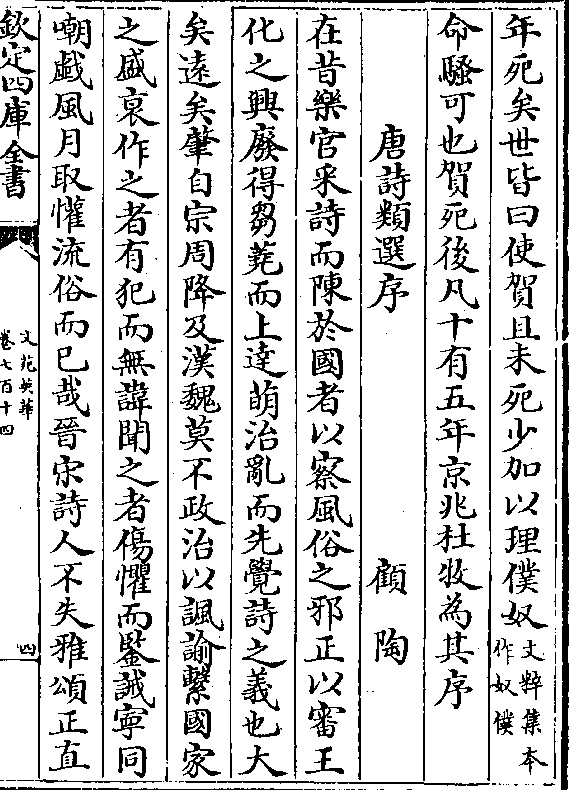 年死矣世皆曰使賀且未死少加以理僕奴文粹集本作奴僕
命騷可也賀死後凡十有五年京兆杜牧為其序
唐詩類選序 顧陶
在昔樂官采詩而陳於國者以察風俗之邪正以審王
化之興廢得芻蕘而上達萌治亂而先覺詩之義也大
矣遠矣肇自宗周降及漢魏莫不政治以諷諭繫國家
之盛衰作之者有犯而無諱聞之者傷懼而鑒誡寜同
嘲戯風月取懽流俗而已哉晉宋詩人不失雅頌正直
欽定四庫全書
文苑英華
卷七百十四
四